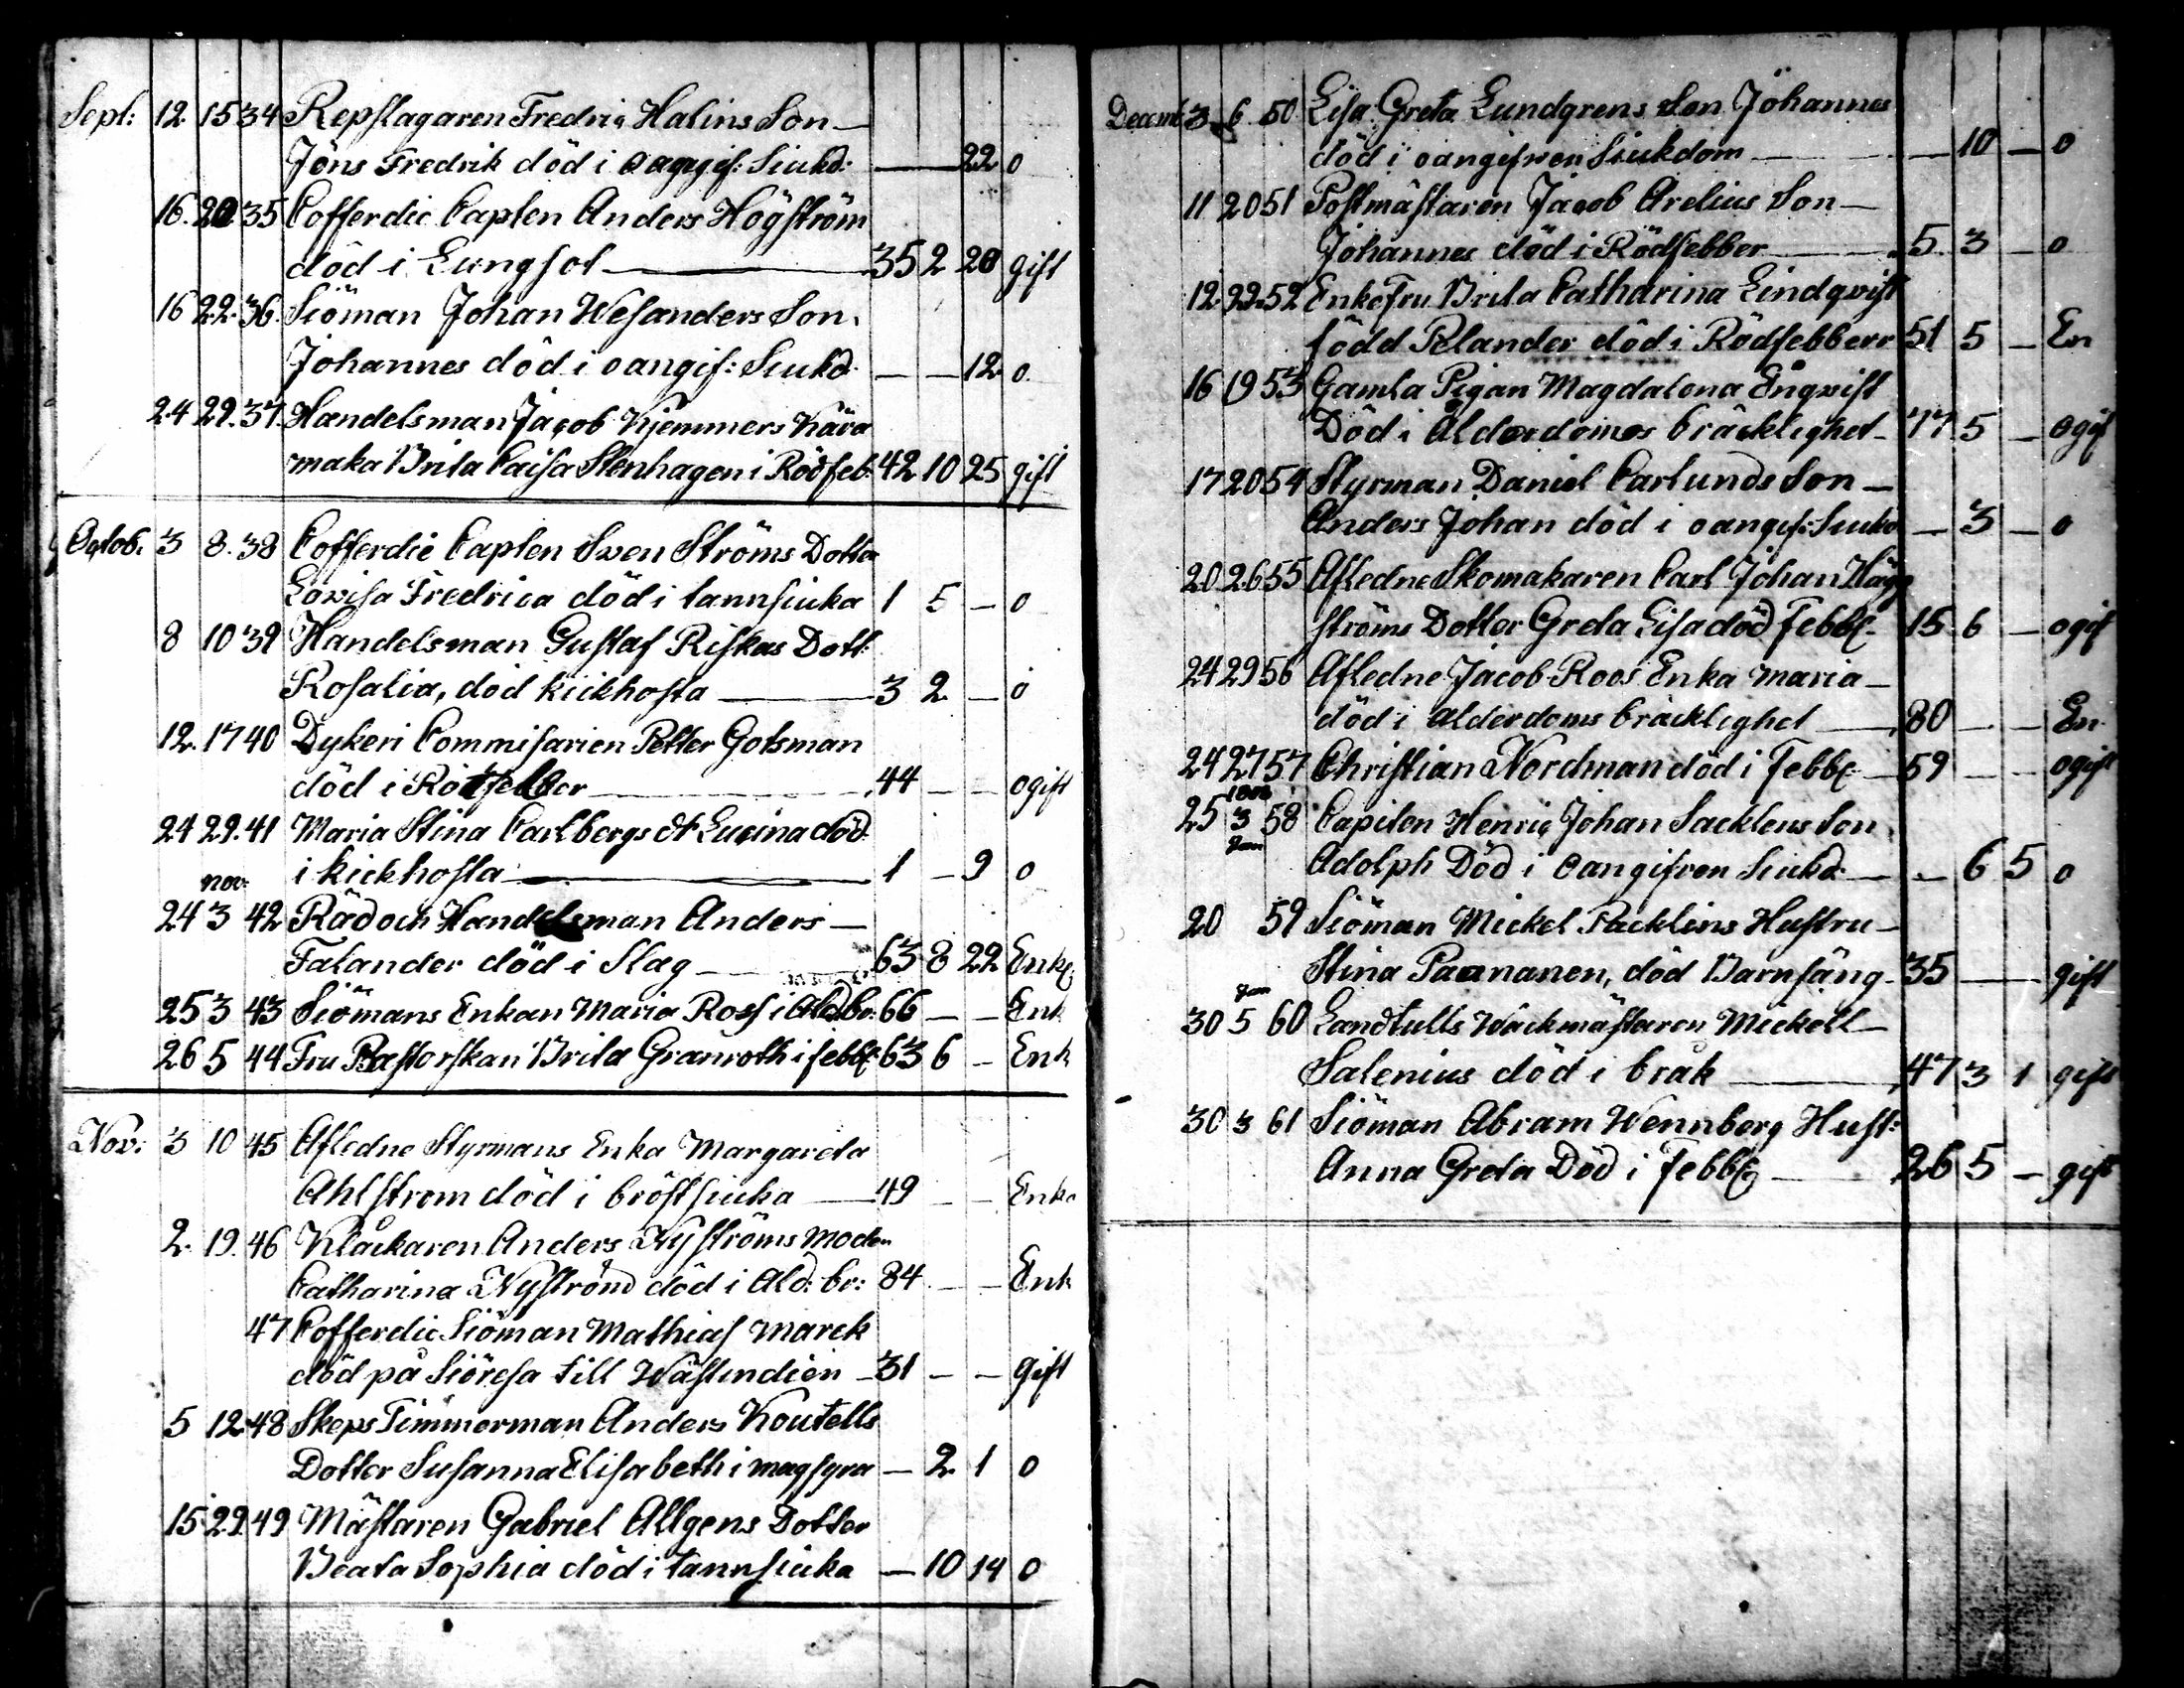 Sept: 12 15 34 Repslagaren Fredric Halins Son —
Jöns Fredrik död i oagngif: Siukd: — 22 o
16. 20 35 Cofferdie Capten Anders Högström
död i Lungsot — 35 2 28 gift
16 22. 36. Siöman Johan Wesanders Son.
Johannes död i oangif: Siukd. — — 12 o.
24 29. 37. Handelsman Jacob Kjemmers Kära
maka Brita Caisa Stenhagen i Rödfeb: 42 10 25 gift
Octob: 3 8. 38 Cofferdie Capten Swen Ströms Dotter
Lovisa Fredrica död i tannsiuka 1 5 — o
8 10 39 Handelsman Gustaf Riskas Dott:
Rosalia, död kickhosta — 3 2 — o
12. 17 40 Dykeri Commisarien Petter Gotsman
död i Rötfelber — 44 — — ogift
24 29. 41 Maria Stina Carlbergs dt Lucina död
nov. i kickhosta — 1 — 9 o
24 3 42 Råd och Handelsman Anders —
Falander död i Slag — 63 8 22 Enkl
25 3 43 Siömans Enkan Maria Ross i Ald br. 66 — — Enk
26 5 44 Fru Pastorskan Brita Granroth i febbr: 63 6 — Enk
Nov: 3 10 45 Afledne Styrmans Enka Margareta
Ahlstrom död i bröstsiuka — 49 — — Enka
2. 19. 46 Klåckaren Anders Nyströms moder
Catharina Nyström död i Ald: br: 84 — — Enk
47 Cofferdie Siöman Mathias Marck
död på Siöresa till Wästindien — 31 — — gift
5 12 48 Skeps Timmerman Anders Koutells
Dotter Susanna Elisabeth i magsyra — 2 1 o
15 29. 49 Mästaren Gabriel Allgens Dotter
Beata Sophia död i tannsiuka — 10 14 o
Decemb: 3 6 50 Lisa Greta Lundgrens Son Johannes
död i oangifven Siukdom — — 10 — o
11 20 51 Postmästaren Jacob Arelius Son —
Johannes död i Rödfebber — 5 3 — o
12 22. 52 Enkefru Brita Catharina Lindqvist
född Pelander död i Rödfebberr 51 5 — En
16 19 53 Gamla Pigan Magdalena Enqvist
Död i Ålderdomes bräcklighet — 77 5 — ogif
17 20 54 Styrman Daniel Carlunds Son —
Anders Johan död i oangif: Siukd — 3 — o
20 26 55 Afledne Skomakaren Carl Johan Hägg
ströms Dotter Greta Lisa död Febbr — 15 6 — ogif
24 29 56 Afledne Jacob Roos Enka Maria —
död i alderdoms bräcklighet — 80 — — En
24 27 57 Christian Nordman död i Febbr — 59 — — ogift
25 3 Jan 58 Capiten Henric Johan Sacklens Son
Adolph Död i oangifven Siukd. — — 6 5 o
20 59 Siöman Mickel Packlins Hustru —
Stina Paananen, död Barnsäng — 35 — — gift
Jan
30 5 60 Landtulls Wackmästaren Mickell —
Salenius död i bråk — 47 3 1 gift
30 3 61 Siöman Abram Wennberg Hust:
Anna Greta Död i Febbr — 26 5 — gift